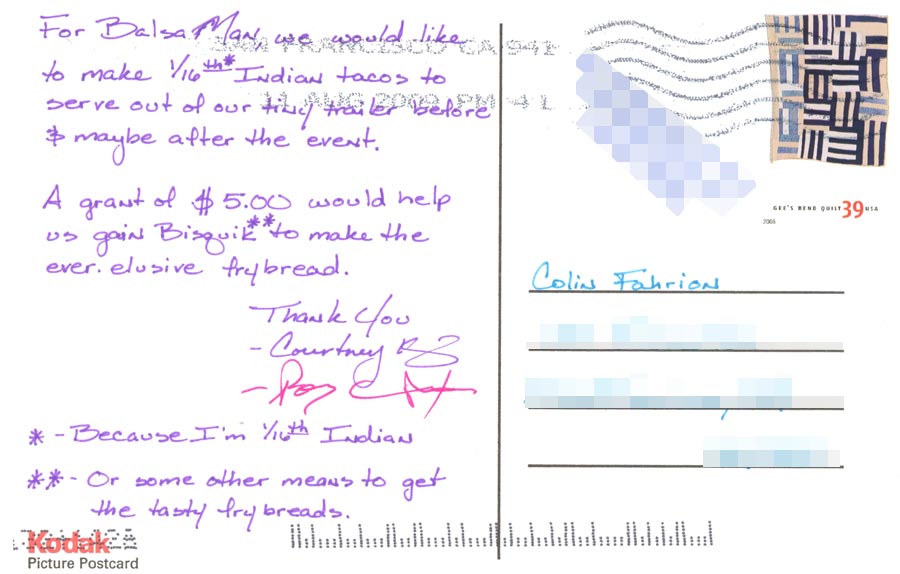 For Balsa Man, we would like
to make 1/16th* Indian tacos to
serve out of our tiny trailer before
& maybe after the event.
A grant of $5.00 would help
us gain Bisquik** to make the
ever.elusive frybread.
Thank You
- Courtney
* - Because I'm 1/16th Indian
** - Or some other means to get
the tasty frybreads.
Kodak
Picture Postcard
SAN FRANCISCO CA 941
11 AUG 2009 PM 4 L
GEE'S BEND QUILT 39 USA
2006
Colin Fahrion